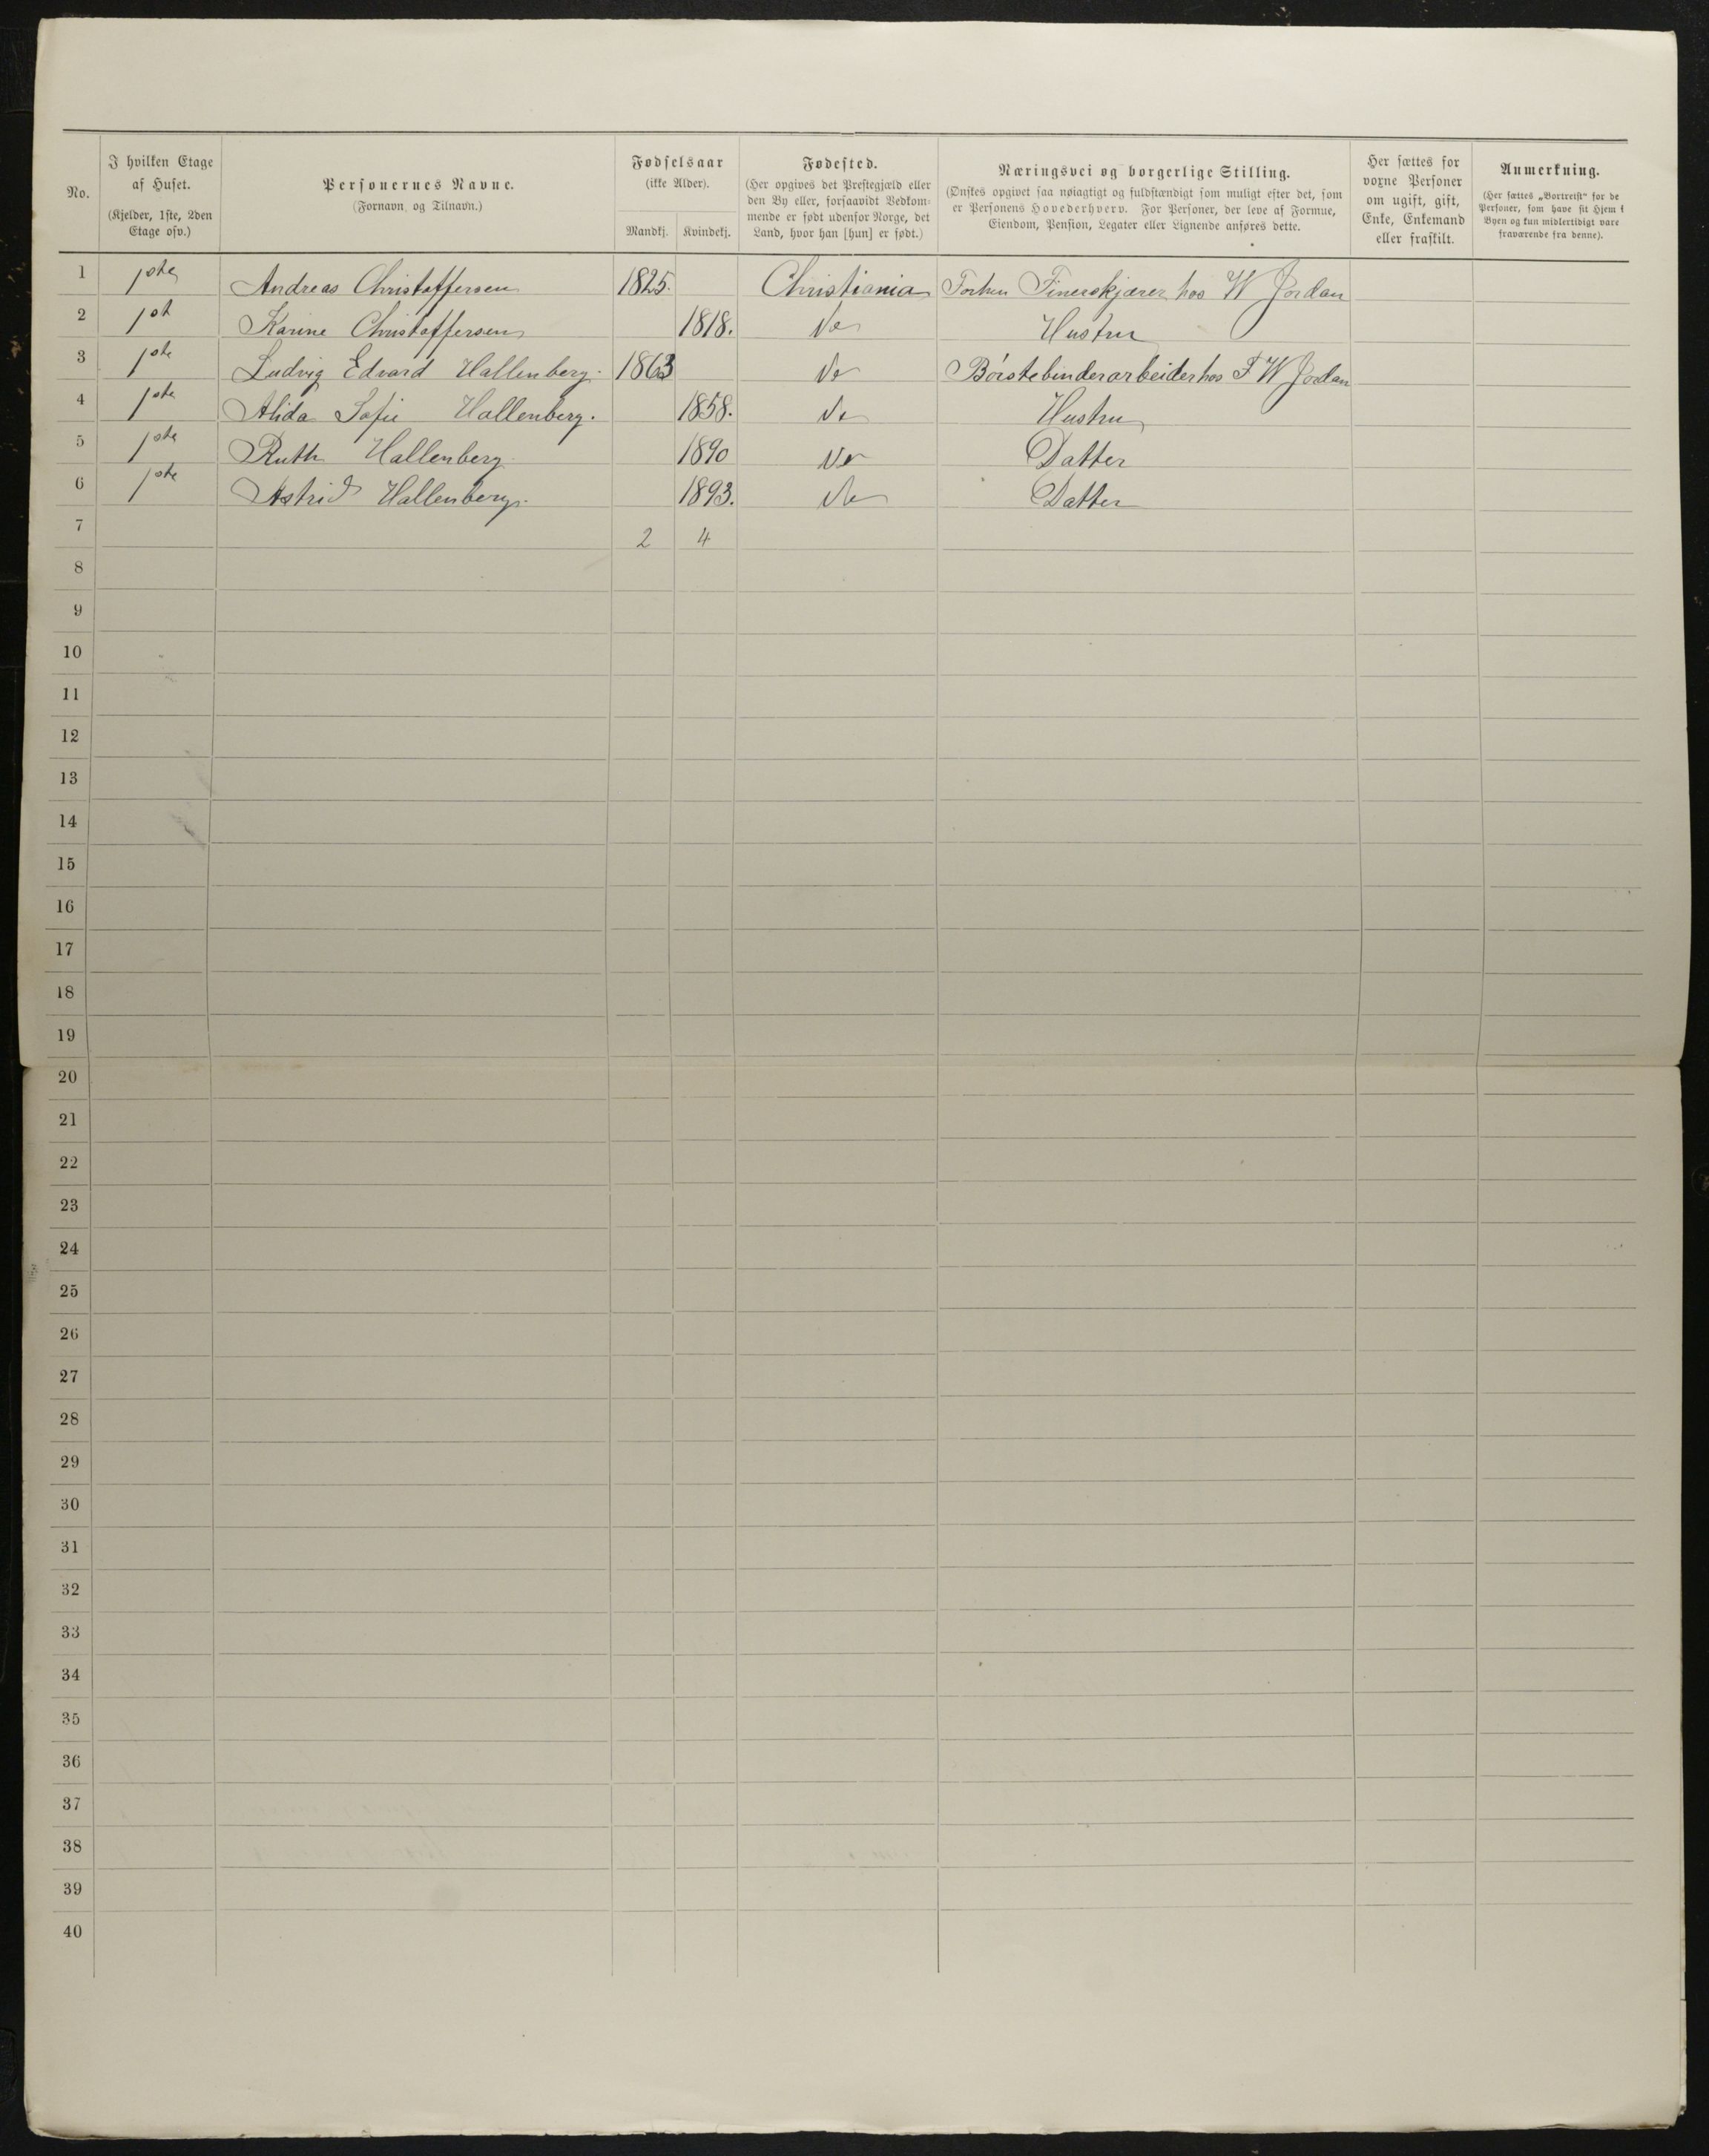 No.
I hvilken Etage af Huset.
(Kjelder, 1ste, 2den Etage osv.)
Personernes Navne.
(Fornavn og Tilnavn.)
Fødselsaar
(ikke Alder).
Mandkj. Kvindekj.
Fødested.
(Her opgives det Prestegjæld eller
den By eller, forsaavidt Vedkom-
mende er født udenfor Norge, det
Land, hvor han [hun] er født.)
Næringsvei og borgerlige Stilling.
(Ønskes opgivet saa nøiagtigt og fuldstændigt som muligt efter det, som
er Personens Hovederhverv. For Personer, der leve af Formue,
Eiendom, Pension, Legater eller Lignende anføres dette.
Her sættes for
voxne Personer
om ugift, gift,
Enke, Enkemand
eller fraskilt.
Anmerkning.
(Her sættes „Bortreist“ for de
Personer, som have sit Hjem i
Byen og kun midlertidigt vare
fraværende fra denne).
1 1ste Andreas Christoffersen 1825. Christiania Finerskjærer hos W Jordan
2 1st Karine Christoffersen 1818. Do Hustru
3 1ste Ludvig Edvard Hallenberg. 1863 Do Børstebinderarbeider hos F W Jordan
4 1ste Alida Sofie Hallenberg. 1858. Do Hustru
5 1ste Ruth Hallenberg 1890 Do Datter
6 1ste Astrid Hallenberg. 1893. Do Datter
7 2 4
8
9
10
11
12
13
14
15
16
17
18
19
20
21
22
23
24
25
26
27
28
29
30
31
32
33
34
35
36
37
38
39
40